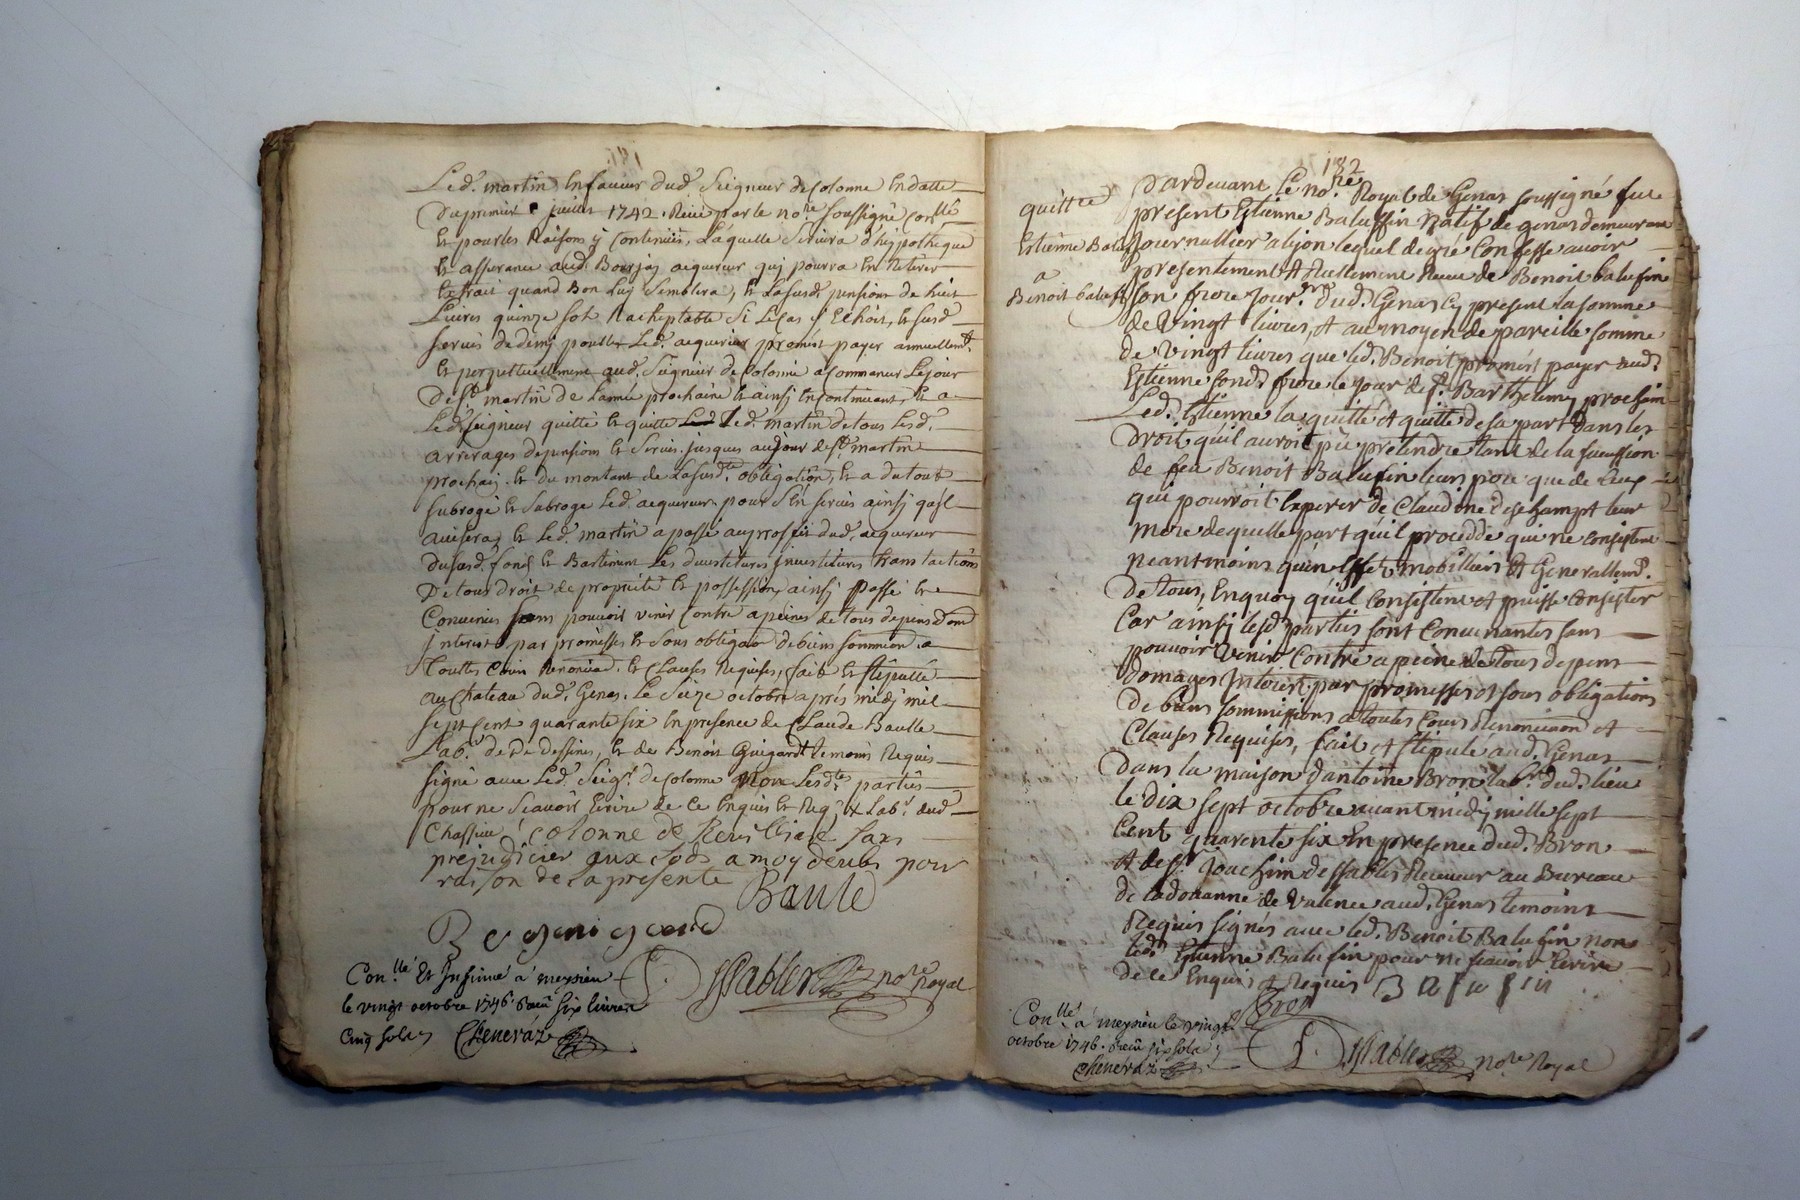 Led. martin en faveur dud. Seigneur de colonne en datte
Du premier juillet 1742. Receu par le no.re soussigné con.llé
Et pour les Raisons y contenües, Laquelle servira d'hypotheque
et assurance aud. Bourjay aquereur quj pourra en Retirer
Extrait quand Bon luy semblera, & la susd. pension de huit
Livres quinze sols Racheptable si le cas y Echoit, & susd.
servis de demy poulle Led. aquereur promet payer annuellem.t
Et perpetuellement aud. Seigneur de Colonne a commancer Le jour
De S.t martin de L'année prochaine & ainsj En continuant, & a
Led. seigneur quitté & quitte Led. martin de tous Lesd.
arrerages de pensions & servis jusques au jour de S.t martin
prochain & du montant de La susd. obligation, & a du tout
subrogé & subroge Led. aquereur pour s'En servir ainsj qu'jl
avisera, & Led. martin a passé au proffit dud. aquereur
du susd. fond & Bastiment Les devestitures investitures translactions
De tous droit de proprieté & possession, ainsj Passé &
Convenus sans pouvoir venir Contre a peines de tous depens dom.
Interest par promesses & sous obligaon de biens soumission a
Touttes Cours Renonciaon. & Clauses Requises, fait & stipullé
au chateau dud. Genas. Le seize octobre aprés midj mil
sept Cent quarante six En presence de Claude Baulle
Lab.r de De dessines, & de Benoit Guigard temoins Requis
signé avec Led. Seig.r de Colonne non Lesd.tes parties
pour ne sçavoir Ecrire de Ce Enquis & Req.
Chassieu colonne de sans
prejudicier aux a moy deubs pour
raison de la presente Baule
Con.llé Et Insinué a meysieu
le vingt octobre 1746. Receu six livres
Cinq sols Cheneraz
Dessables no.re Royal
182
quittce
Estienne Balufin
a
Benoit balufin
Pardevant Le no.re Royal de Genas soussigné fut
present Estienne Baluffin Natif de genas demeurant
Journallier a lion lequel de gré Confesse avoir
presentement & reellement Receu de Benoit balufin
son frere Jour.er dud. Genas cy present la somme
de Vingt livres, & au moyen de pareille somme
de Vingt livres que led. Benoit promet payer aud.
Estienne sond. frere le jour de S.t Barthelemy prochain
Led. Estienne la quitté & quitte de sa part dans les
Droits qu'il auroit pû pretendre tant de la sucession
de feu Benoit Balufin leur pere que de ceux
qu'il pourroit Esperer de Claudine deschampt leur
mere de quelle part qu'il procedde qui ne Consistent
neantmoins qu'en Effets mobilliers & Generallem.t
De tous, En quoy qu'il Consistent & puisse Consister
Car ainsj lesd. parties sont Convenantes sans
pouvoir Venir Contre a peine de tous depens
Domages Interest par promesses & sous obligations
De biens soummissions a toutes Cours Renonciaon &
Clauses Requises, fait & stipulé aud. Genas
Dans la maison d'antoine Bron lab.r dud. lieu
le dix sept octobre avant midj mille sept
Cent quarente six En presence dud. Bron
& de S.r Joachim dessables Receveur au Bureau
de la douanne de Valence aud. Genas temoins
Requis signés avec led. Benoit Balufin non
led. Estienne Balufin pour ne sçavoir Ecrire
de ce Enquis & Requis
Bron
Con.llé a meysieu le vingt
octobre 1746. Receu six sols
Cheneraz
Dessables no.re Royal